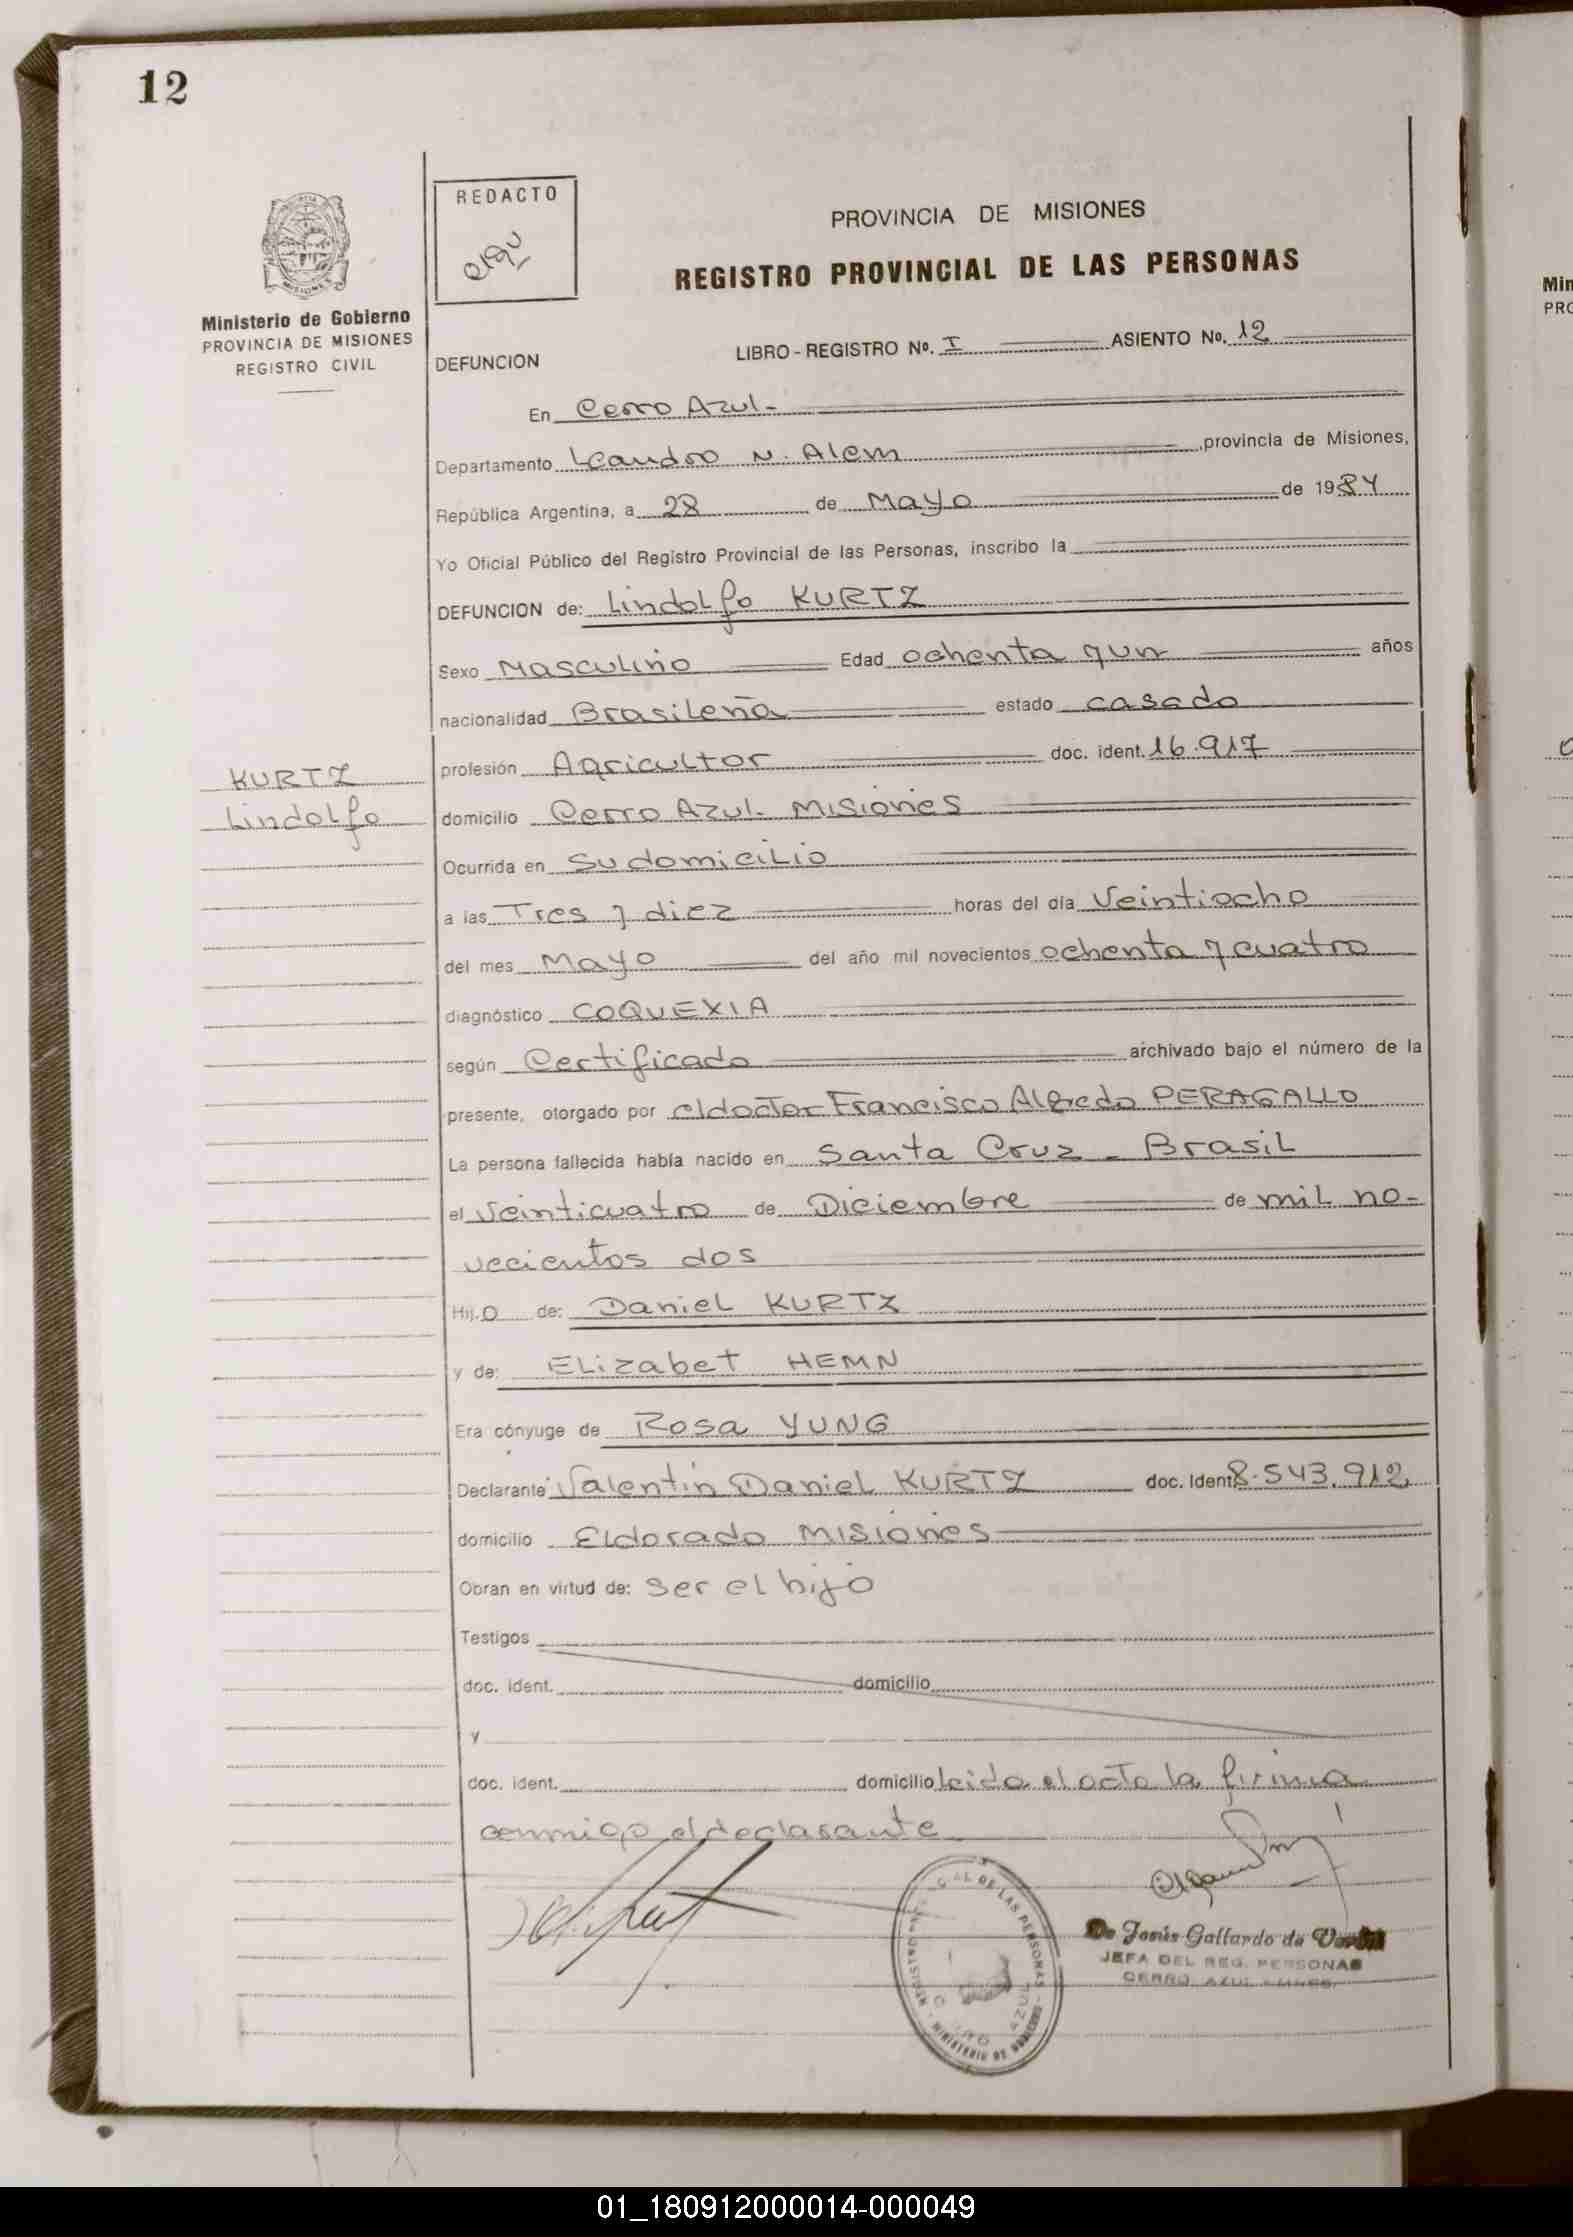 12
REDACTO
PROVINCIA DE MISIONES
REGISTRO PROVINCIAL DE LAS PERSONAS
Ministerio de Gobierno
PROVINCIA DE MISIONES
REGISTRO CIVIL
DEFUNCION
LIBRO - REGISTRO Nº. I ASIENTO No. 12
En Cerro Azul-
Departamento Leandro N. Alem, provincia de Misiones,
República Argentina, a 28 de Mayo de 1984
Yo Oficial Público del Registro Provincial de las Personas, inscribo la
DEFUNCION de: Lindolfo KURTZ
Sexo Masculino Edad ochenta y un años
nacionalidad Brasileña estado casado
profesión Agricultor doc. ident. 16.917
KURTZ
Lindolfo
domicilio Cerro Azul. Misiones
Ocurrida en su domicilio
a las Tres y diez horas del día Veintiocho
del mes Mayo del año mil novecientos ochenta y cuatro
diagnóstico COQUEXIA
según Certificado archivado bajo el número de la
presente, otorgado por el doctor Francisco Alfredo PERAGALLO
La persona fallecida había nacido en Santa Cruz - Brasil
el Veinticuatro de Diciembre de mil no-
vecientos dos
Hij.o de: Daniel KURTZ
y de: Elizabet HEMN
Era cónyuge de Rosa YUNG
Declarante Valentin Daniel KURTZ doc. Ident. 8.543.912
domicilio Eldorado Misiones
Obran en virtud de: ser el hijo
Testigos
doc. ident. domicilio
y
doc. ident. domicilio leida el acta la firma
conmigo el declarante
Jesús Gallardo de
JEFA DEL REG. PERSONAS
CERRO AZUL - MNES.
REGISTRO PROVINCIAL DE LAS PERSONAS - MINISTERIO DE GOBIERNO
CERRO AZUL
Min
PRO
01_180912000014-000049